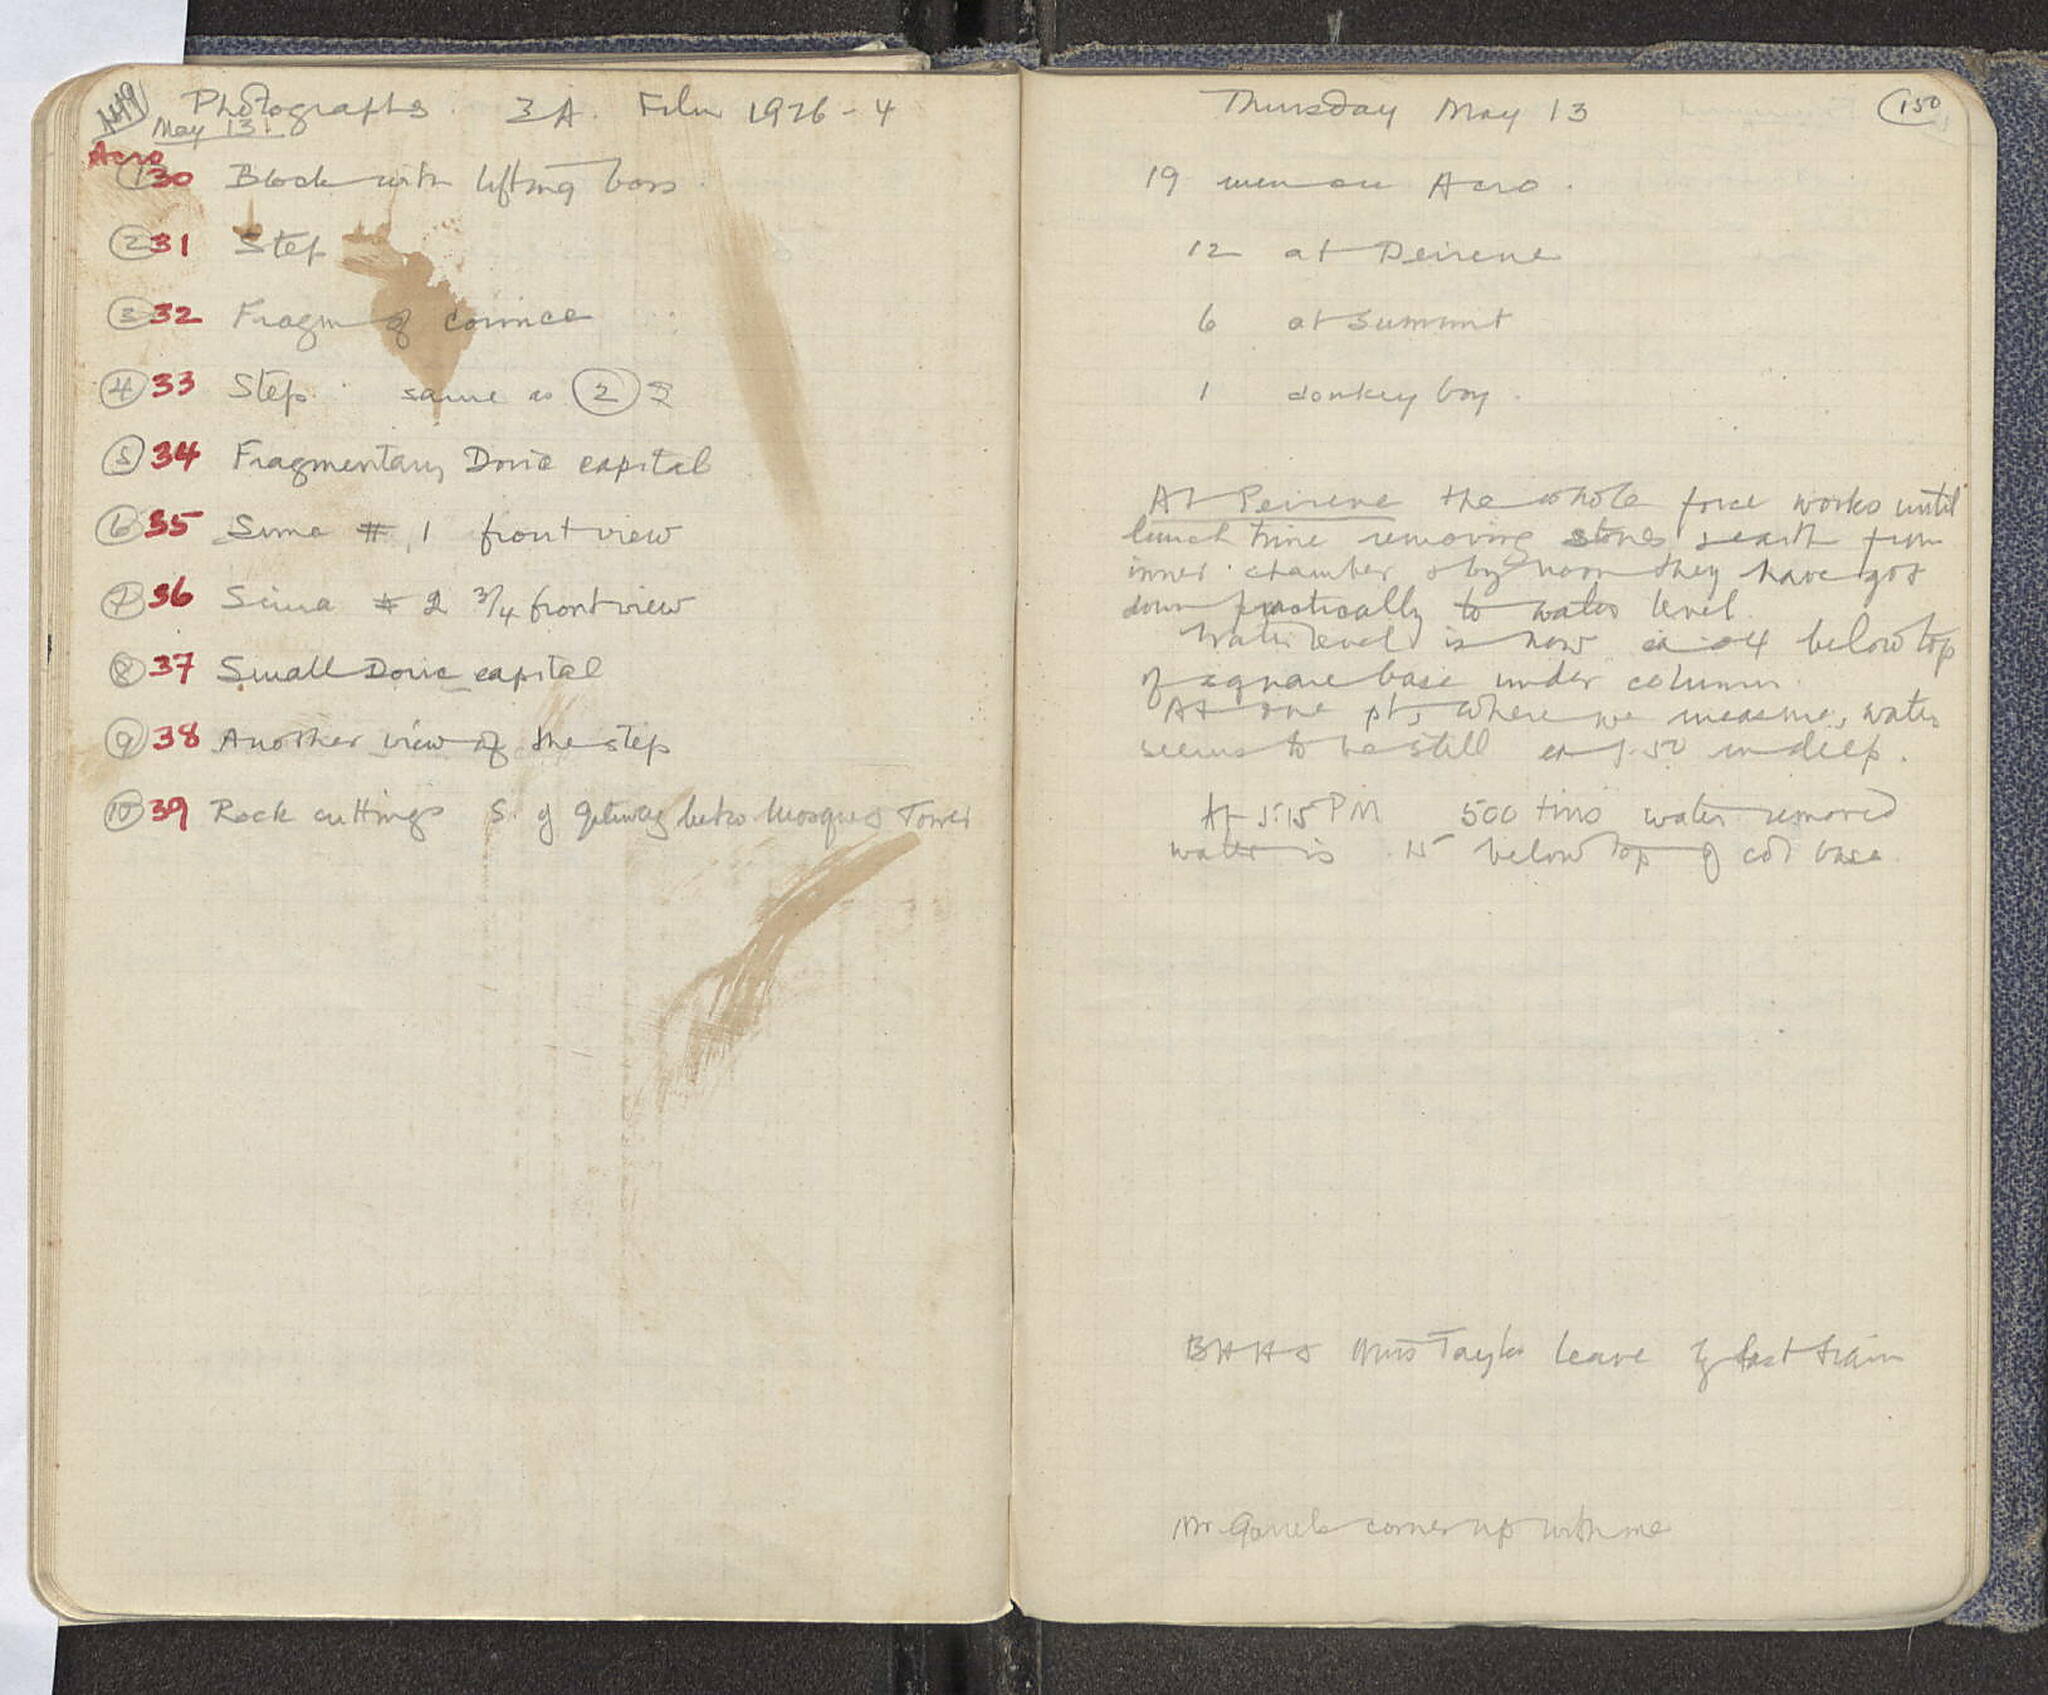 149
Photographs. 3A. Film 1926-4
May 13.
Acro
① 30 Block with lifting boss.
② 31 Step
③ 32 Fragm of cornice
④ 33 Step. same as ②
⑤ 34 Fragmentary Doric capital
⑥ 35 Sima # 1 front view
⑦ 36 Sima # 2 3/4 front view
⑧ 37 Small Doric capital
⑨ 38 Another view of the step
⑩ 39 Rock cuttings S. of gateway betw Mosque & Tower
Thursday May 13
150
19 men on Acro.
12 at Peirene
6 at Summit
1 donkey boy.
At Peirene the whole force works until
lunch time removing stones & earth from
inner chamber & by noon they have got
down practically to water level.
Water level is now ca below top
of square base under column.
At one pt, where we measure, water
seems to be still ca 1.50 m deep.
At 5:15 PM 500 tins water removed
water is .15 below top of col base
BHH & Miss Taylor leave by fast train
Mr. comes up with me